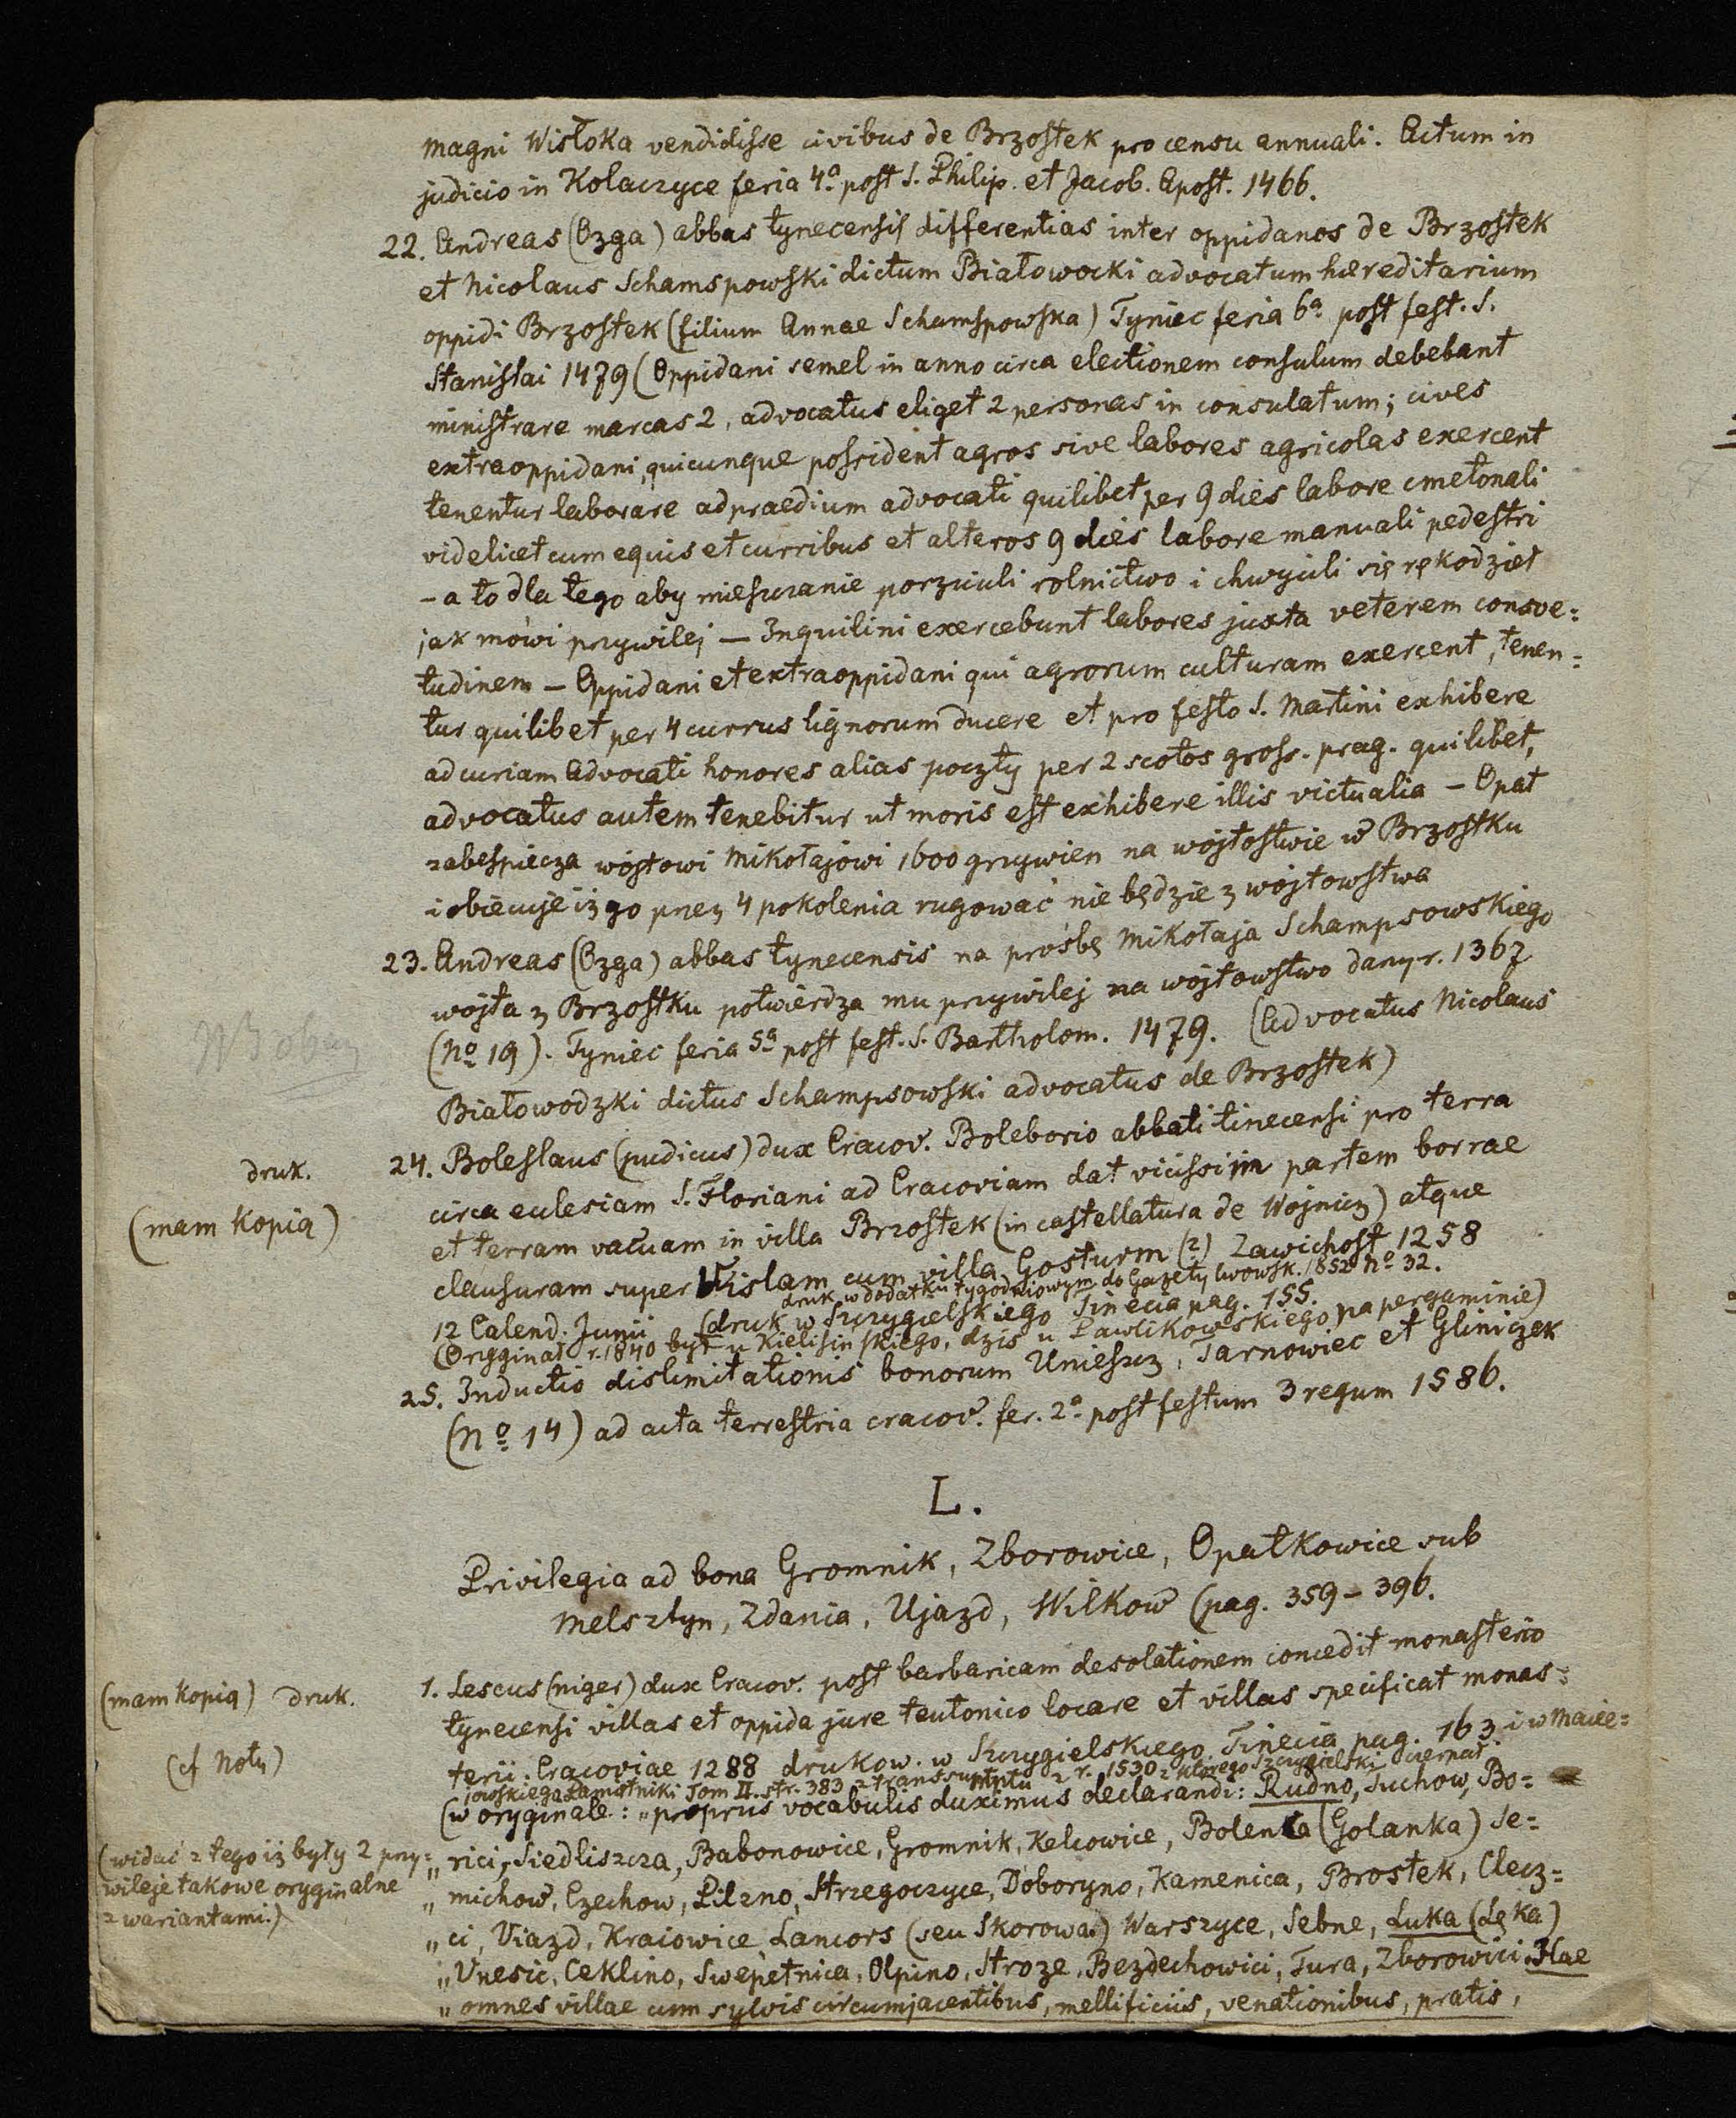 magni Wisłoka vendidisse civibus de Brzostek pro censu annuali. Actum in
judicio in Kolaczyce feria 4ª post S. Philip. et Jacob. Apost. 1466.
22. Andreas (Ozga) abbas tynecensis differentias inter oppidanos de Brzostek
et Nicolaus Schamspowski dictum Białowocki advocatum hæreditarium
oppidi Brzostek (filium Annae Schamspowska) Tyniec feria 6ª post fest. S.
Stanislai 1479 (Oppidani semel in anno circa electionem consulum debebant
ministrare marcas 2, advocatus eliget 2 personas in consulatum; cives
extraoppidani, quicunque possident agros sive labores agricolas exercent
tenentur laborare ad praedium advocati quilibet per 9 dies labore cmetonali
videlicet cum equis et curribus et alteros 9 dies labore manuali pedestri
– a to dla tego aby mieszczanie porzucili rolnictwo i chwycili się rękodzieł
jak mówi przywilej — Inquilini exercebunt labores juxta veterem consve=
tudinem – Oppidani et extraoppidani qui agrorum culturam exercent, tenen=
tur quilibet per 4 currus lignorum ducere et pro festo S. Martini exhibere
ad curiam Advocati honores alias poczty per 2 scotos gross. prag. quilibet,
advocatus autem tenebitur ut moris est exhibere illis victualia – Opat
zabespiecza wójtowi Mikołajowi 1600 grzywien na wójtostwie w Brzostku
i obiecuje iż go przez 4 pokolenia rugować nie będzie z wójtowstwa
23. Andreas (Ozga) abbas tynecensis na prośbę Mikołaja Schampsowskiego
wójta z Brzostku potwierdza mu przywilej na wójtowstwo dany r. 1367
(No 19). Tyniec feria 5ª post fest. S. Bartholom. 1479. (Advocatus Nicolaus
Białowodzki dictus Schampsowski advocatus de Brzostek)
druk. 24. Boleslaus (pudicus) dux Cracov. Boleborio abbati tinecensi pro terra
circa ecclesiam S. Floriani ad Cracoviam dat vicissim partem borrae
(mam kopią) et terram vacuam in villa Brzostek (in castellatura de Wojnicz) atque
clausuram super Wislam cum villa Gosturm (?) Zawichost 1258
druk w dodatku tygodniowym do Gazety lwowsk. 1852 No 32.
12 Calend. Junii (druk w Szczygielskiego Tinecia pag. 155.
(Oryginał r. 1840 był u Kielisińskiego, dziś u Pawlikowskiego na pergaminie)
25. Inductio dislimitationis bonorum Uniescz, Tarnowiec et Gliniczek
(No 14) ad acta terrestria cracov. fer. 2ª post festum 3 regum 1586.
L.
Privilegia ad bona Gromnik, Zborowice, Opatkowice sub
Melsztyn, Zdania, Ujazd, Wilkow (pag. 359 – 396.
(mam kopią) druk. 1. Lescus (niger) dux Cracov. post barbaricam desolationem concedit monasterio
tynecensi villas et oppida jure teutonico locare et villas specificat monas=
(cf Noty) terii. Cracoviae 1288 drukow. w Szczygielskiego Tinecia pag. 163. i w Macie=
jowskiego Pamiętniki Tom II. str. 383 z transsumptu z r. 1530 z którego Szczygielski czerpał.
(w oryginale: „propriis vocabulis duximus declarandi: Rudno, Tuchow, Bo=
(widać z tego iż były 2 przy=
wileje takowe oryginalne
z wariantami.)
„rici, Siedliszcza, Babonowice, Gromnik, Kelcowice, Bolenca (Golanka) Se=
„michow, Czechow, Pilzno, Strzegoczyce, Doboryno, Kamenica, Brostek, Clecz=
„ci, Viazd, Kraiowice, Lancors (seu Skorowa) Warszyce, Sebne, Łuka (Łęka)
„Vnesic, Ceklino, Swepetnica, Olpino, Stroze, Bezdechowici, Tura, Zborowici. Hae
„omnes villae cum sylvis circumjacentibus, mellificiis, venationibus, pratis,